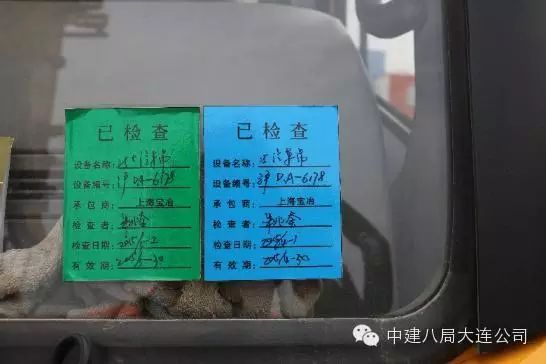 已检查
设备名称:
设备编号: 沪DA-6178
承包商: 上海宝冶
检查者:
检查日期: 2015/5-2
有效期: 2015/5-30
已检查
设备名称: 25汽车吊
设备编号: 沪D.A-6178
承包商: 上海宝冶
检查者:
检查日期:
有效期:
中建八局大连公司